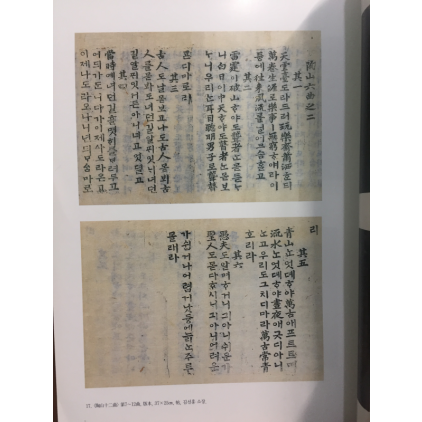 陶山六曲之二
其一
天雲臺도라드러玩樂齋蕭洒ᄒᆞᆫᄃᆡ
萬卷生涯로樂事ㅣ無窮ᄒᆞ얘라이
듕에往來風流를닐어므슴ᄒᆞᆯ고
其二
雷霆이破山ᄒᆞ야도聾者ᄂᆞᆫ몯듣ᄂᆞ
니白日이中天ᄒᆞ야도瞽者ᄂᆞᆫ몯보
ᄂᆞ니우리ᄂᆞᆫ耳目聰明男子로聾瞽
ᄀᆮ디마로리
其三
古人도날몯보고나도古人몯뵈古
人를몯봐도녀던길알ᄑᆡ잇ᄂᆡ녀던
길알ᄑᆡ잇거든아니녀고엇뎔고
其四
當時예녀던길흘몃ᄒᆡ를ᄇᆞ려두고
어듸가ᄃᆞ니다가이제ᅀᅡ도라온고
이제나도라오나니년ᄃᆡᄆᆞᅀᆞᆷ마로
리
其五
青山ᄂᆞᆫ엇뎨ᄒᆞ야萬古애프르르며
流水ᄂᆞᆫ엇뎨ᄒᆞ야晝夜애긋디아니
ᄂᆞᆫ고우리도그치디마라萬古常青
호리라
其六
愚夫도알며ᄒᆞ거니긔아니쉬운가
聖人도몯다ᄒᆞ시니긔아니어려운
가쉽거나어렵거낫듕에늙ᄂᆞᆫ주를
몰래라